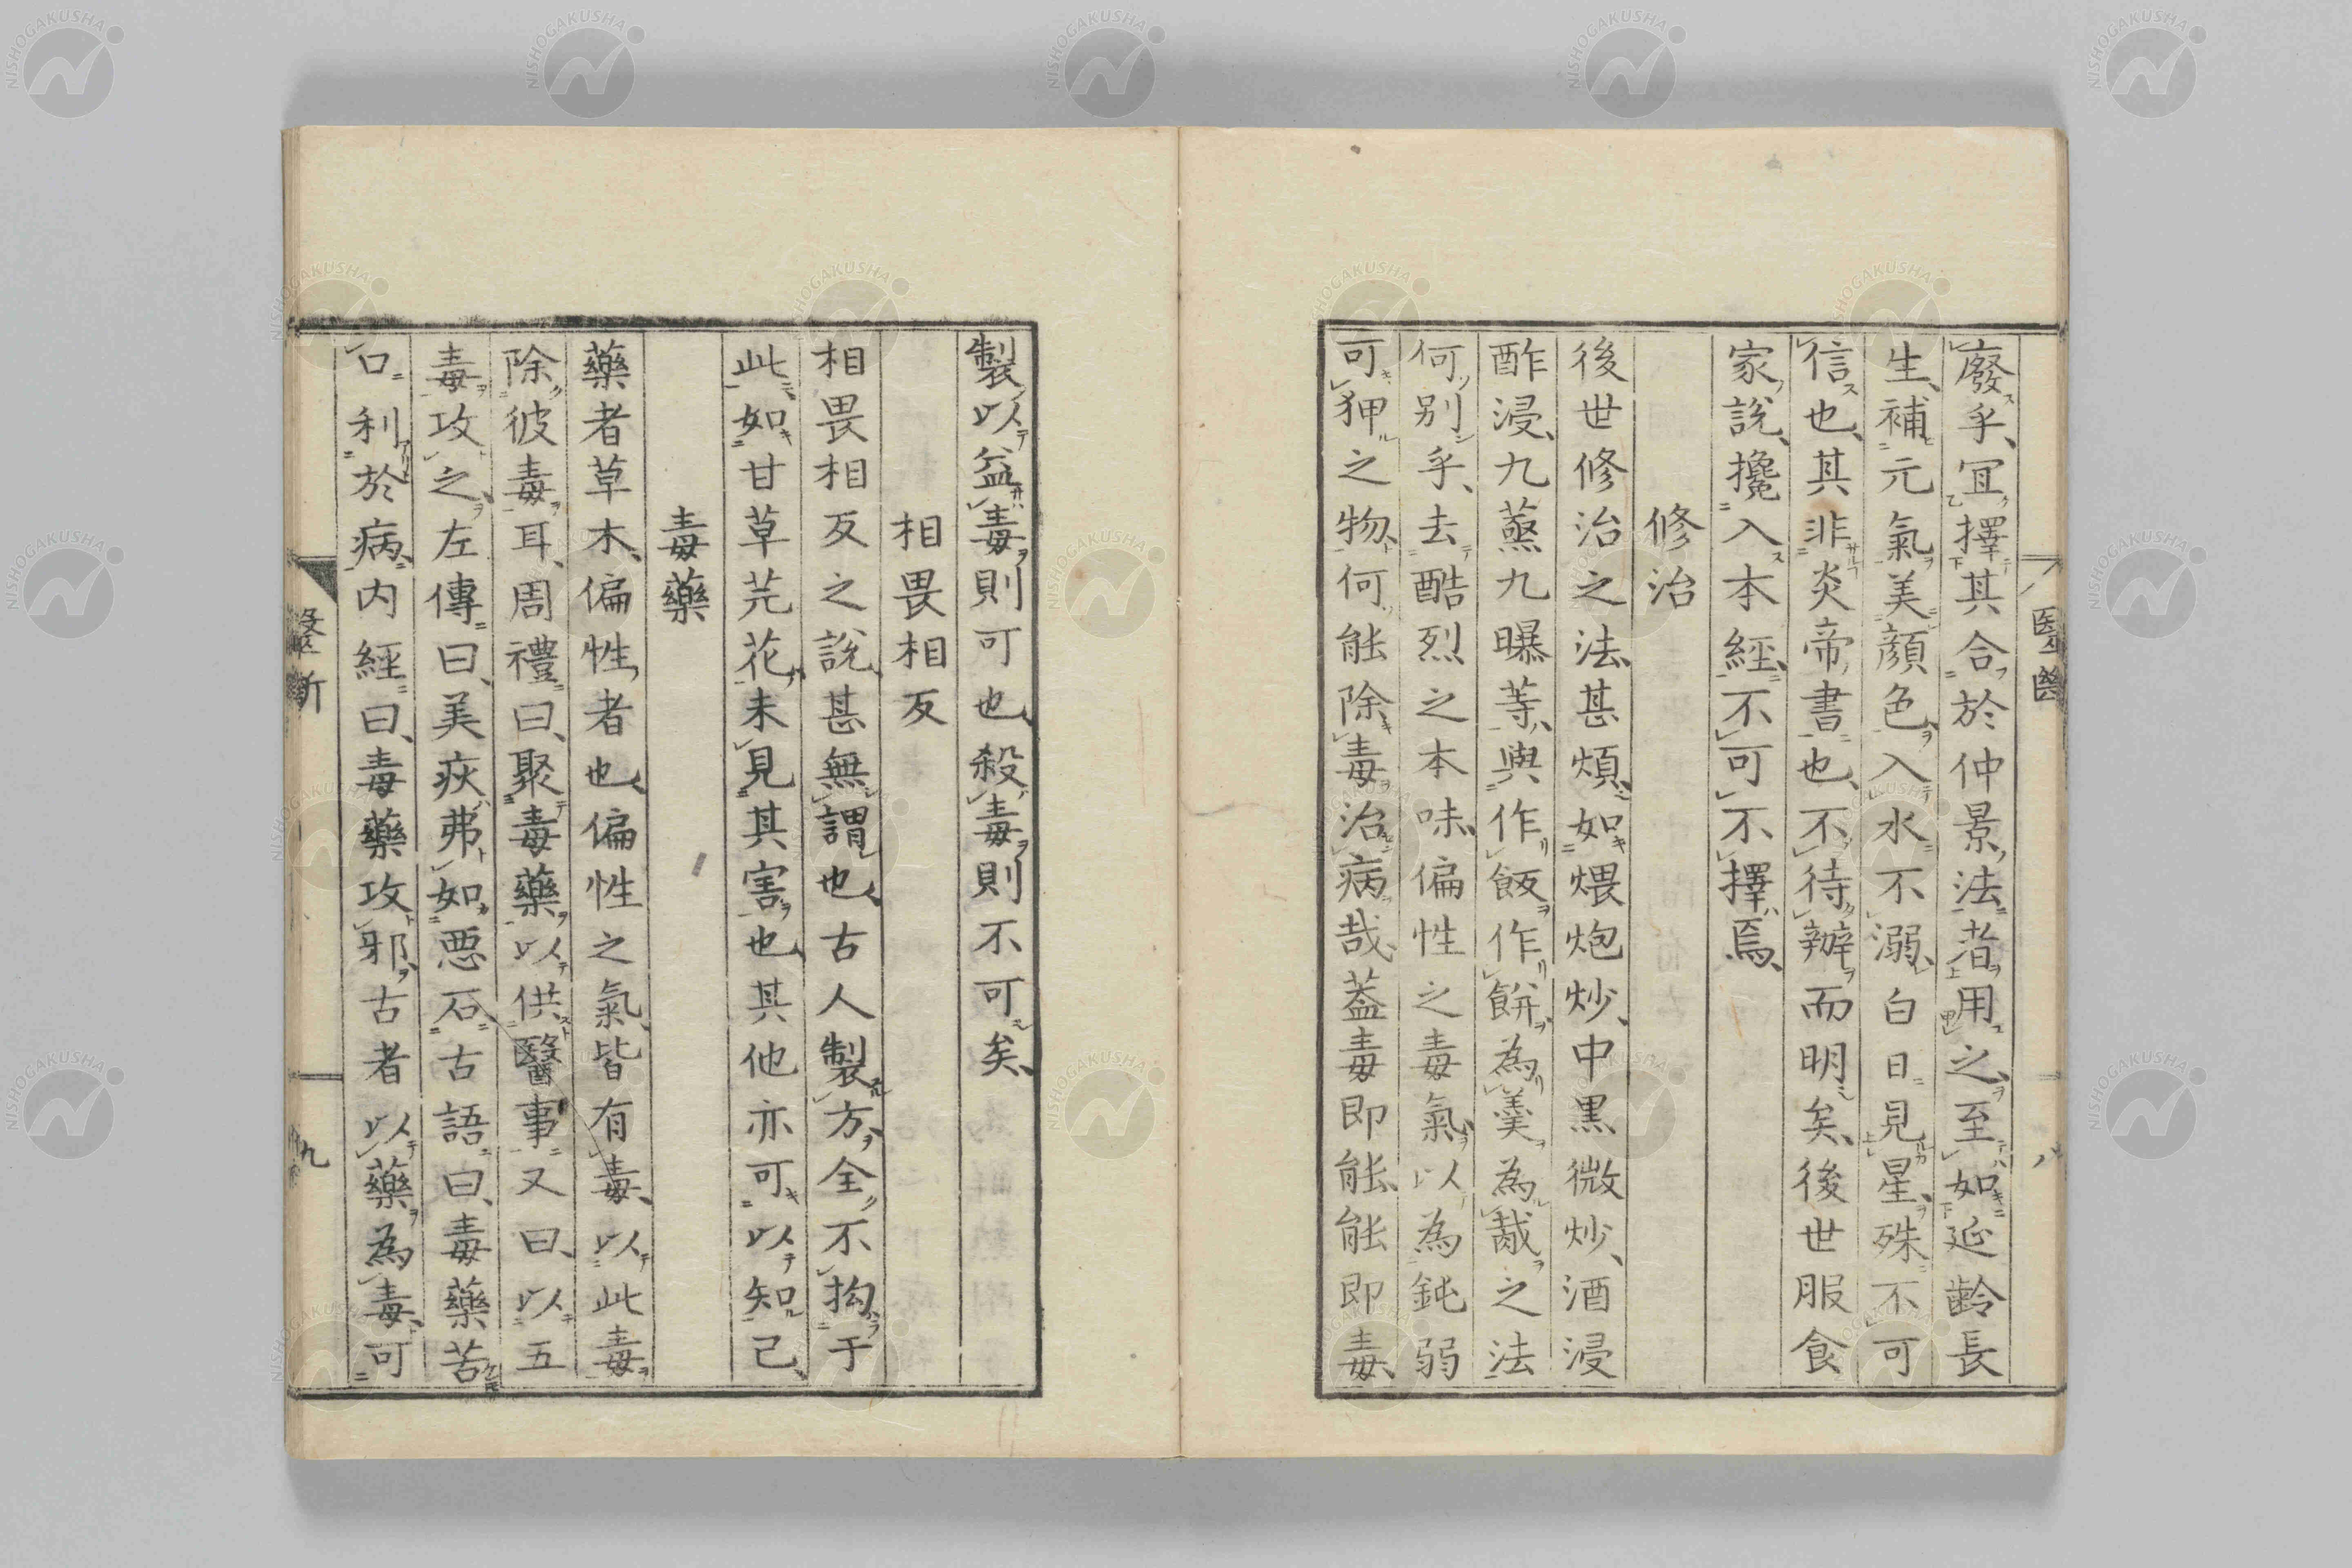 廢乎、宜擇其合於仲景法者用之、至如延齡長
生、補元氣美顏色、入水不溺、白日見星、殊不可
信也、其非炎帝書也、不待辨而明矣、後世服食
家說、攙入本經、不可不擇焉、
修治
後世修治之法、甚煩、如煨炮炒、中黑微炒、酒浸
酢浸、九蒸九曝等、與作飯作餅、為羹為胾之法
何別乎、去酷烈之本味、偏性之毒氣、以為鈍弱
可狎之物、何能除毒治病哉、蓋毒即能、能即毒、
製以益毒則可也、殺毒則不可矣、
相畏相反
相畏相反之說、甚無謂也、古人製方、全不拘于
此、如甘草芫花、未見其害也、其他亦可以知已、
毒藥
藥者草木、偏性者也、偏性之氣、皆有毒、以此毒
除彼毒耳、周禮曰、聚毒藥以供醫事、又曰、以五
毒攻之、左傳曰、美疢弗如惡石、古語曰、毒藥苦
口利於病、內經曰、毒藥攻邪、古者以藥為毒、可
醫斷
九
八
NISHOGAKUSHA